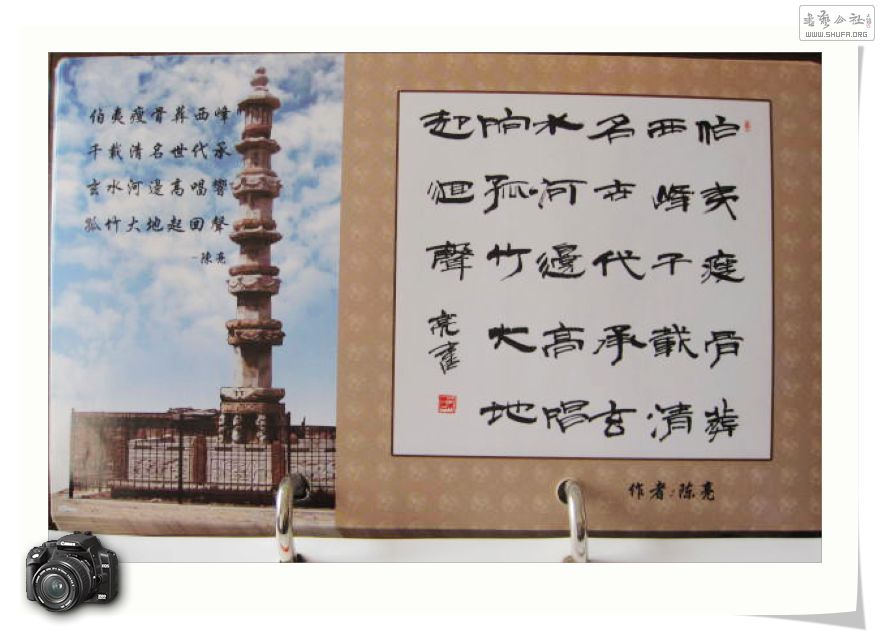 書藝公社
WWW.SHUFA.ORG
伯夷瘦骨葬西峰
千載清名世代承
玄水河邊高唱響
孤竹大地起回聲
-陳亮
伯夷瘦骨葬
西峰千載清
名世代承玄
水河邊高唱
响孤竹大地
起迴聲
亮書
作者:陈亮
Canon
EOS